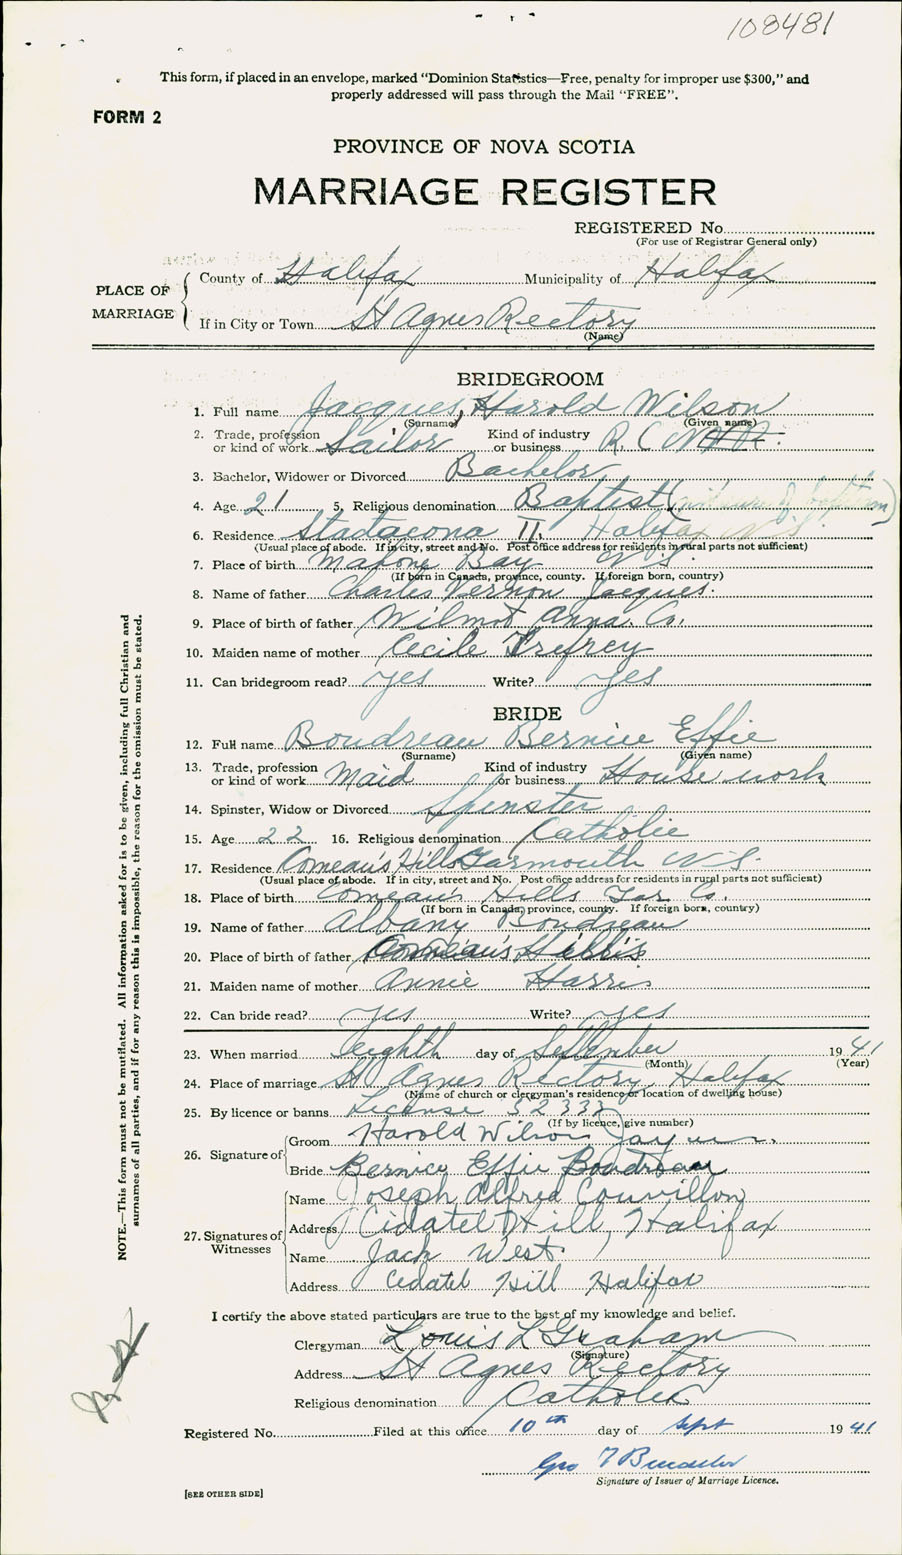 108481
This form, if placed in an envelope, marked “Dominion Statistics—Free, penalty for improper use $300,” and
properly addressed will pass through the Mail “FREE”.
FORM 2
PROVINCE OF NOVA SCOTIA
MARRIAGE REGISTER
REGISTERED No.
(For use of Registrar General only)
PLACE OF MARRIAGE
County of Halifax Municipality of Halifax
If in City or Town St Agnes Rectory
(Name)
BRIDEGROOM
1. Full name Jacques, Harold Wilson
(Surname) (Given name)
2. Trade, profession or kind of work Sailor Kind of industry or business R. C N
3. Bachelor, Widower or Divorced Bachelor
4. Age 21 5. Religious denomination Baptist
6. Residence Stadacona II. Halifax N.S.
(Usual place of abode. If in city, street and No. Post office address for residents in rural parts not sufficient)
7. Place of birth Mahone Bay N.S.
(If born in Canada, province, county. If foreign born, country)
8. Name of father Charles Vernon Jacques.
9. Place of birth of father Wilmot Anna. Co.
10. Maiden name of mother Cecile Trefrey
11. Can bridegroom read? yes Write? yes
BRIDE
12. Full name Boudreau Bernice Effie
(Surname) (Given name)
13. Trade, profession or kind of work Maid Kind of industry or business House work
14. Spinster, Widow or Divorced Spinster
15. Age 22 16. Religious denomination Catholic
17. Residence Comeau's Hills Yarmouth N.S.
(Usual place of abode. If in city, street and No. Post office address for residents in rural parts not sufficient)
18. Place of birth Comeau's Hills Yar. Co.
(If born in Canada, province, county. If foreign born, country)
19. Name of father Albany Boudreau
20. Place of birth of father Comeau's Hills
21. Maiden name of mother Annie Harris
22. Can bride read? yes Write? yes
23. When married eighth day of September 1941
(Month) (Year)
24. Place of marriage St Agnes Rectory, Halifax
(Name of church or clergyman's residence or location of dwelling house)
25. By licence or banns License 32333
(If by licence, give number)
26. Signature of
Groom Harold Wilson Jacques.
Bride Bernice Effie Boudreau
27. Signatures of Witnesses
Name Joseph Alfred
Address Cidatel Hill, Halifax
Name Jack West
Address Cedatel Hill Halifax
I certify the above stated particulars are true to the best of my knowledge and belief.
Clergyman Louis L Graham
(Signature)
Address St Agnes Rectory
Religious denomination Catholic
Registered No. Filed at this office 10th day of Sept 1941
Geo
Signature of Issuer of Marriage Licence.
[SEE OTHER SIDE]
NOTE.—This form must not be mutilated. All information asked for is to be given, including full Christian and
surnames of all parties, and if for any reason this is impossible, the reason for the omission must be stated.